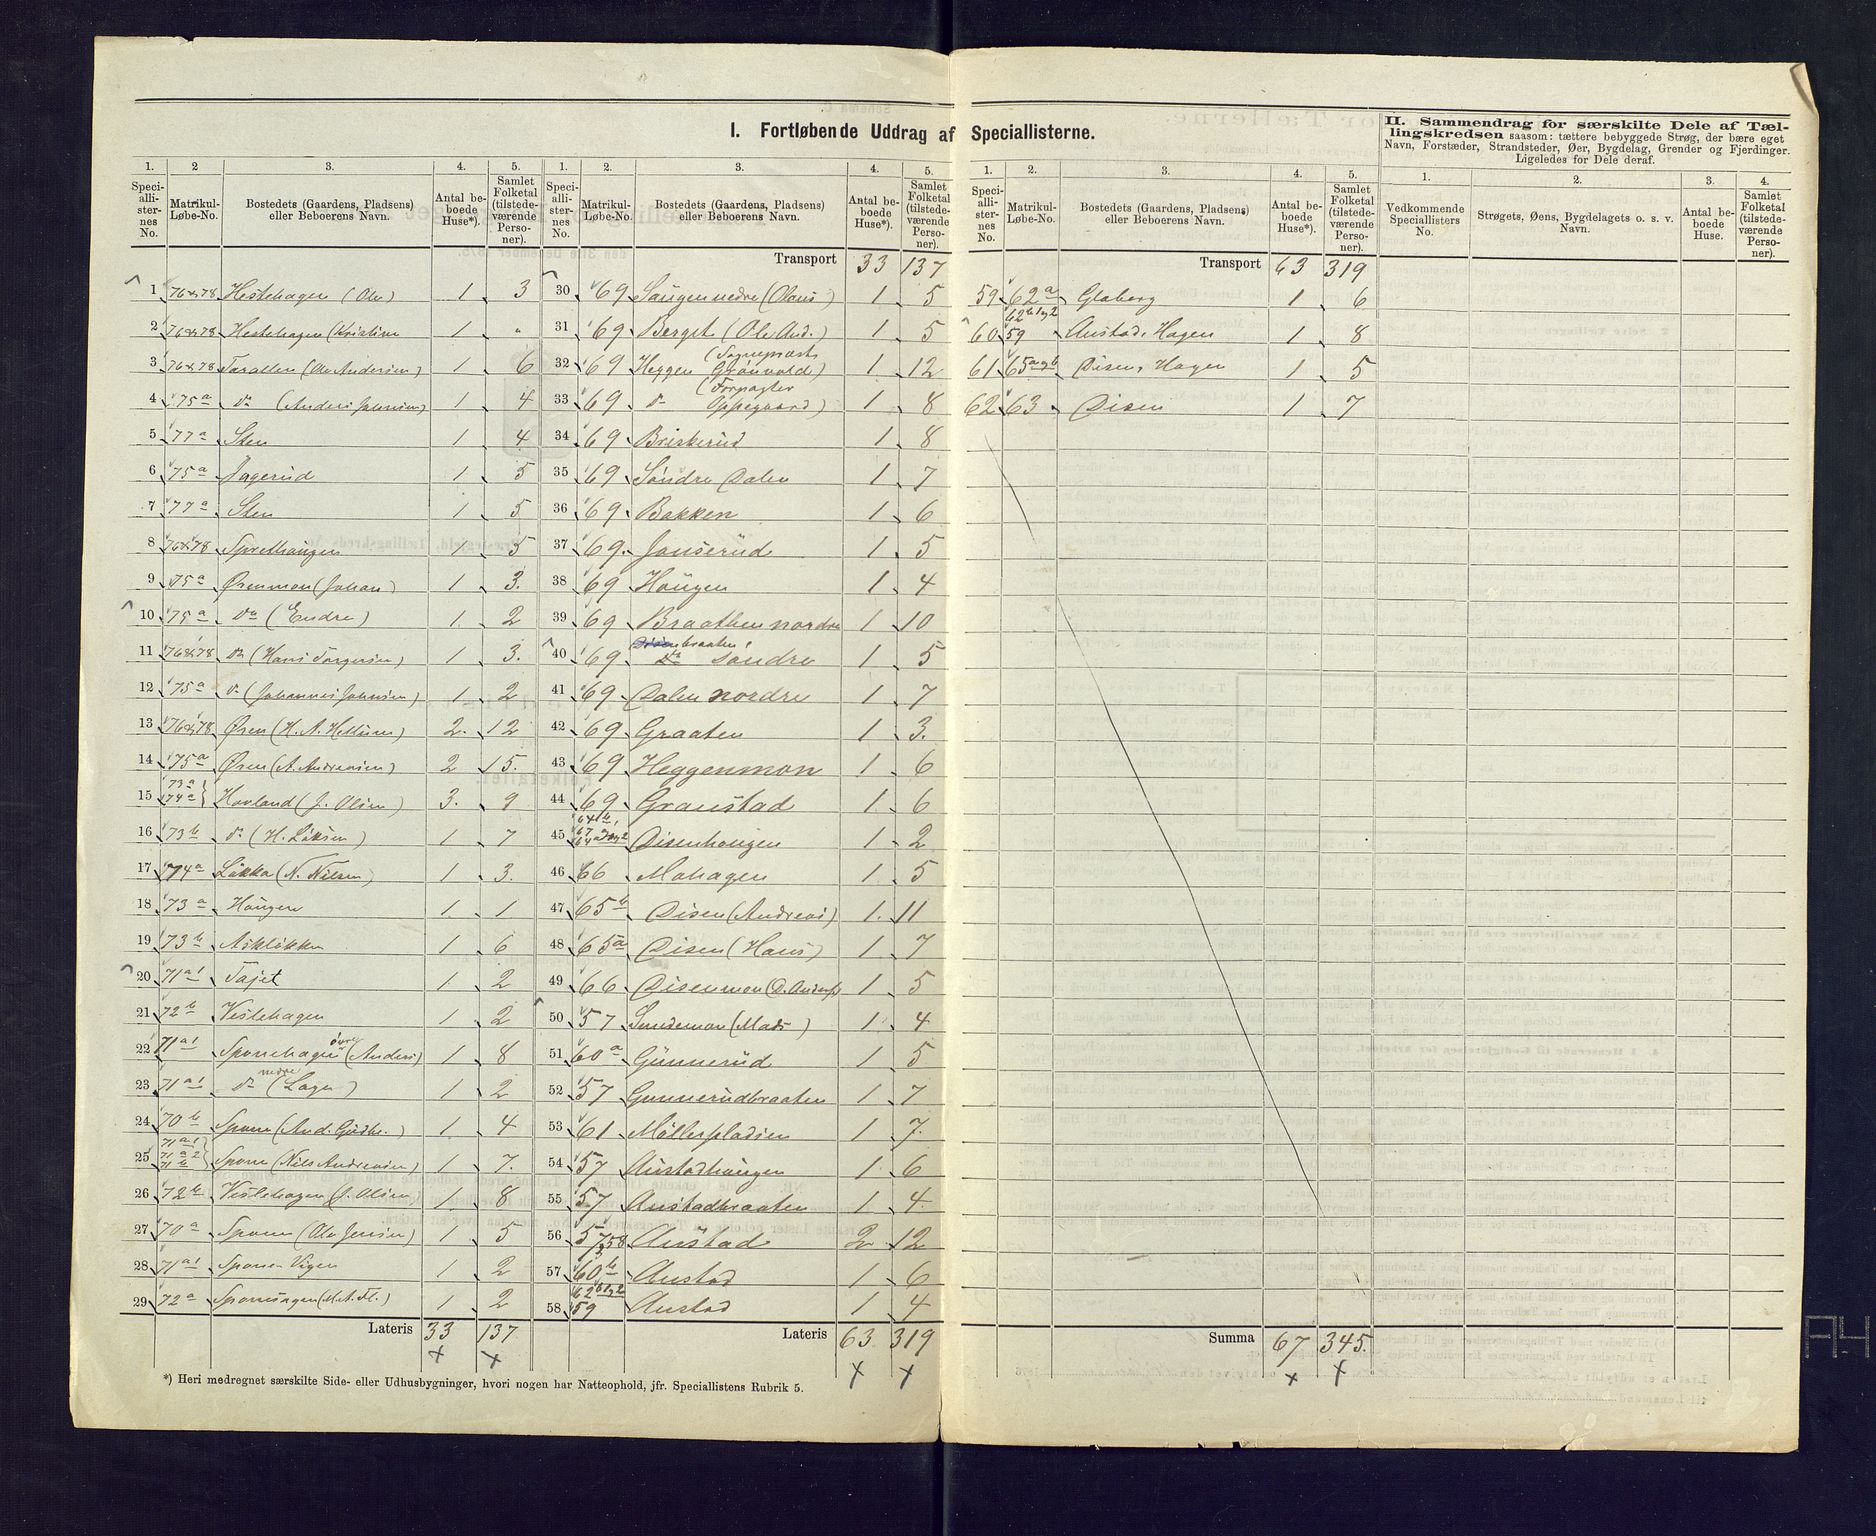 I. Fortløbende Uddrag af Speciallisterne.
1. 2 3. 4. 5.
Speciallisternes No. Matrikul-Løbe-No. Bostedets (Gaardens, Pladsens) eller Beboerens Navn. Antal beboede Huse*). Samlet Folketal (tilstedeværende Personer).
1 76&78 Hestehagen (Ole) 1 3
2 76&78 Hestehagen (Kristine 1 "
3 76&78 Taraldsen (Ole Andersen) 1 6
4 75a do (Anders Johnsen) 1 4
5 77a Sten 1 4
6 75a Aagerud 1 5
7 77a Sten 1 5
8 76&78 Sprelhaugen 1 5
9 75a Ørenmon (Johan) 1 3.
10 75a do (Endre) 1. 2
11 76&78 do (Hans Torgersen) 1 3.
12 75a do (Johannes Johnsen) 1 2
13 76&78 Øren (H. A. Hellum) 2. 12
14 75a Øren (A. Andresen) 2 15.
15 73a 74a Hovland (J. Olsen) 3. 9
16 73b do (H. Löksen) 1 7
17 74a Lökka (N. Nilsen) 1 3.
18 73a Haugen 1. 1
19 73b Asklökken 1 6
20 71a1 Tajet 1 2
21 72b Veslehagen 1 2
22 71a1 Sponehagen övre (Anders) 1 8
23 71a1 do nedre (Lage) 1 2
24 70b Spone (And. Gudbr.) 1 4
25 71a1 71a2 71b Spone (Nils Andresen) 1 7.
26 72b Veslehagen (J. Olsen) 1. 8
27 70a Spone (Ole Jensen) 1 5
28 71a1 Spone Vigen 1 2
29 72a Sponehagen (M. A. Fl.) 1 2
Lateris 33 137
*) Heri medregnet særskilte Side- eller Udhusbygninger, hvori nogen har Natteophold, jfr. Speciallistens Rubrik 5.
1. 2. 3. 4. 5.
Speciallisternes No. Matrikul-Løbe-No. Bostedets (Gaardens, Pladsens) eller Beboerens Navn. Antal beboede Huse*). Samlet Folketal (tilstedeværende Personer).
Transport 33 137
30 69 Haugen nedre (Olaus) 1 5
31 69 Berget (Ole And.) 1 5
32 69 Heggen (Sognepræst Grönvold) 1 12
33 69 do (Forpagter Oppegaard) 1 8
34 69 Briskerud 1 8
35 69 Söndre Dalen 1 7
36 69 Bakken 1 6
37 69 Jonserud 1 5
38 69 Haugen 1 4
39 69 Braathen nordre 1 10
40 69 Disenbraaten do söndre 1 5
41 69 Dalen nordre 1 7
42 69 Graaten 1 3.
43 69 Heggenmon 1 6
44 69 Granstad 1 6
45 64b, 67 64a1og2 Disenhaugen 1 2
46 66 Mohagen 1. 5
47 65b Disen (Andreas) 1. 11
48 65a Disen (Hans) 1 7
49 66 Disenmon (D. Anders) 1 5
50 57 Sundemon (Mads) 1 4
51 60a Gunnerud 1 5
52 57 Gunnerudbraaten 1 7
53 61 Möllerpladsen 1 7.
54 57 Austadhaugen 1 6
55 57 Austadbraaten 1 4
56 57, 58 Austad 2 12
57 60b Austad 1 6
58 62b1og2 59 Austad 1 4
Lateris 63 319
1. 2. 3. 4. 5.
Speciallisternes No. Matrikul-Løbe-No. Bostedets (Gaardens, Pladsens) eller Beboerens Navn. Antal beboede Huse*). Samlet Folketal (tilstedeværende Personer).
Transport 63 319
59 62a Globerg 1 6
60 62b1og2 59 Austad, Hagen 1 8
61 65aogb Disen, Hagen 1 5
62 63 Disen 1 7
Summa 67 345.
II. Sammendrag for særskilte Dele af Tællingskredsen saasom: tættere bebyggede Strøg, der bære eget Navn, Forstæder, Strandsteder, Øer, Bygdelag, Grender og Fjerdinger. Ligeledes for Dele deraf.
1. 2. 3. 4.
Vedkommende Speciallisters No. Strøgets, Øens, Bygdelagets o. s. v. Navn. Antal beboede Huse. Samlet Folketal (tilstedeværende Personer).